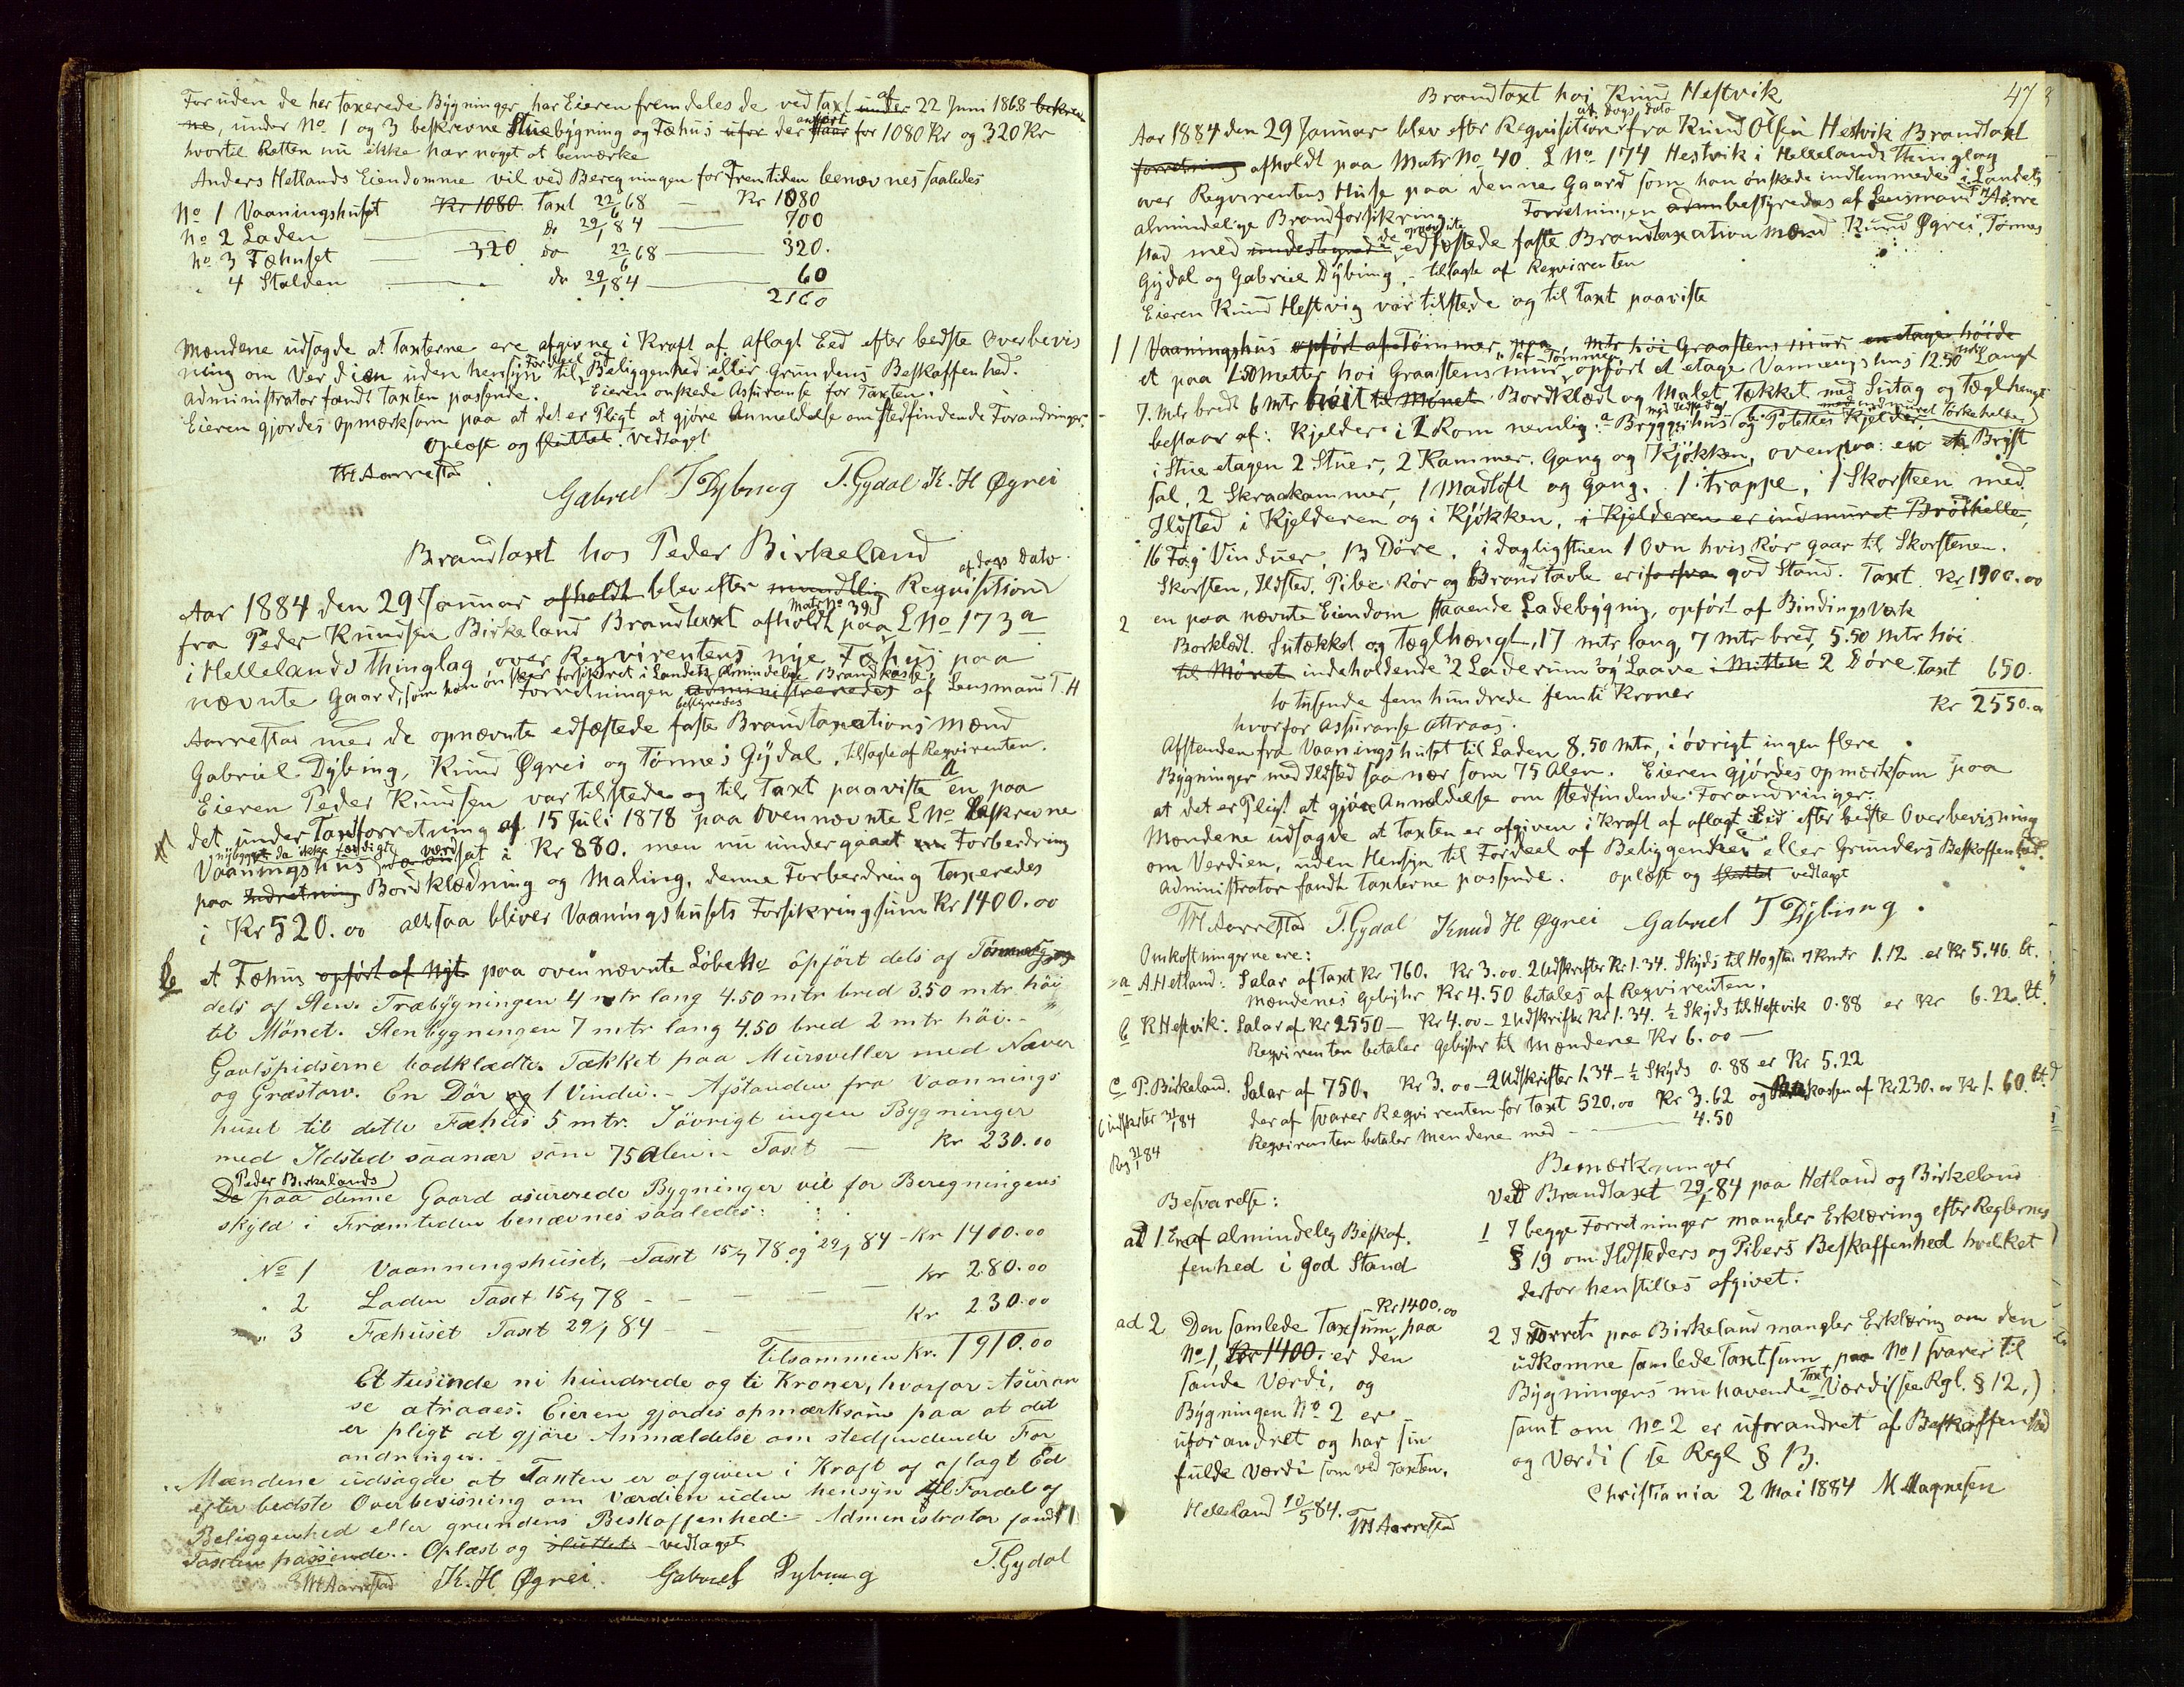 For uden de her taxerede Bygninger har Eieren fremdeles de ved taxt under af 22 Juni 1868 bekrev
ne, under No 1 og 3 beskrevne Stuebygning og Fæhus ufor der staar anført for 1080 Kr og 320 Kr
hvortil Retten nu ikke har noget at bemærke
Anders Hetlands Eiendomme vil ved Beregningen for Fremtiden benævnes saaledes
No 1 Vaaningshuset Kr 1080 Taxt 22/6 68 — Kr 1080
No 2 Laden — do 29/1 84 — 700
No 3 Fæhuset — 320 do 22/6 68 — 320.
" 4 Stalden — do 29/1 84 — 60
2160
Mændene udsagde at Taxterne ere afgivne i Kraft af aflagt Eed efter bedste Overbevis
ning om Verdien uden hensyn til Fordeel af Beliggenhed eller Grundens Beskaffenhed.
Administrator fandt Taxten passende. Eieren ønskede Assuranse for Taxten.
Eieren gjordes opmærksom paa at det er Pligt at gjøre Anmeldelse om stedfindende Forandringer.
Oplæst og sluttet. vedtaget
TH Aarrestad
Gabriel T Dybing T. Gydal K. H Øgrei
Brandtaxt hos Peder Birkeland
Aar 1884 den 29 Januar afholdt blev efter mundtlig Requisition af dags Dato
fra Peder Knudsen Birkeland Brandtaxt afholdt paa Matr No 39 L No 173 a
i Hellelands Thinglag over Reqvirentens nye Fæhus paa
nævnte Gaard, som han ønsker forsikret i Landets Almindelige Brandkasse, Forretningen administreredes bestyredes af Lensmand T. H
Aarrestad med de opnævnte edfæstede faste Brandtaxations mænd
Gabriel Dybing, Knud Øgrei og Tønnes Gydal, tilsagte af Reqvirenten.
Eieren Peder Knudsen var tilstede og til Taxt paaviste a en paa
det under Taxtforretning af 15 Juli 1878 paa ovennævnte L No beskrevne
nybygget da ikke færdigt
Vaaningshus værdsat i Kr 880. men nu undergaaet en Forberdring
paa Indretning Bordklædning og Maling, denne Forberdring taxeredes
i Kr 520.00 altsaa bliver Vaaningshusets Forsikringsum Kr 1400.00
b et Fæhus opført af Nyt paa ovennævnte Løbe No opført dels af Tømmer og
dels af Sten. Træbygningen 4 mtr lang 4.50 mtr bred 3.50 mtr høi
til Mønet. Stenbygningen 7 mtr lang 4.50 bred 2 mtr høi. -
Gavlspidserne bodklædte. Tækket paa Mursviller med Næver
og Græstorv. En Dør og 1 Vindu. - Afstanden fra Vaannings
huset til dette Fæhus 5 mtr. Iøvrigt ingen Bygninger
med Ildsted saanær som 75 Alen. - Taxt — Kr 230.00
De Peder Birkelands paa denne Gaard asurerede Bygninger vil for Beregningens
skyld i Fræmtiden benævnes saaledes:
No 1 Vaanningshuset, Taxt 15/7 78 og 29/1 84 - Kr 1400.00
" 2 Laden Taxt 15/7 78 - — Kr 280.00
" 3 Fæhuset Taxt 29/1 84 - — Kr 230.00
Tilsammen Kr. 1910.00
Et tusinde ni hundrede og ti Kroner, hvorfor Asuran
se atraaes. Eieren gjordes opmærksom paa at det
er pligt at gjøre Anmældelse om stedfindende For
andringer.
Mændene udsagde at Taxten er afgiven i Kraft af aflagt Ed
efter bedste Overbevisning om Værdien uden hensyn til Fordel af
Beliggenhed eller grundens Beskaffenhed. Administrator fandt
Taxten passende. Oplæst og sluttet - vedtaget
TH Aarrestad K. H Øgrei Gabriel Dybing T. Gydal
47
Brandtaxt hos Knud Hestvik
Aar 1884 den 29 Januar blev efter Requisition af dags dato fra Knud Olsen Hestvik Brandtaxt
forretning afholdt paa Matr No. 40 L No 174 Hestvik i Hellelands Thinglag
over Reqvirentens Huse paa denne Gaard som han ønskede indlemmede i Landets
almindelige Brandforsikring. Forretningen bestyredes af Lensmand T H Aarre
stad med de opnævnte edfæstede faste Brandtaxation Mænd Knud Øgrei, Tønnes
Gydal og Gabriel Dybing, tilsagte af Reqvirenten
Eieren Knud Hestvig var tilstede og til Taxt paaviste
1 1 Vaaningshus opført af Tømmer paa mtr høi Graastens mur en etages høide
et paa 1.50 metter høi Graastens mur af Tømmer opført et etage Vanningshus 12.50 mtr Langt
7. Mtr bredt 6 Mtr høit til Mønet. Bordklædt og Malet Tækket med Sutag og Tæglhængt
bestaar af: Kjelder i 2 Rom nemlig: a Bryggerhus med Ildsted og b: Poteteskjelder med indmuret Tørkehelle
i Stue etagen 2 Stuer, 2 Kammer. Gang og Kjøkken, ovenpaa: en Bryst
sal, 2 Skraakammer, 1 Madloft og Gang. 1 Trappe, 1 Skorsteen med
Ildsted i Kjelderen og i Kjøkken, i Kjelderen er indmuret Brødhelle,
16 Fag Vinduer, 13 Døre. i dagligstuen 1 Ovn hvis Rør gaar til Skorstenen.
Skorsten, Ildsted, Pibe Rør og Brandtavle er i forsva god Stand. Taxt Kr 1900.00
2 en paa nævnte Eiendom staaende Ladebygnig, opført af BindingsVærk
Borklædt. Sutækket og Tæglhængt, 17 mtr lang, 7 mtr bred, 5.50 mtr høi
til Mønet indeholdende 2 Laderum og Laave i Mitten 2 Døre. Taxt 650.
to tusende femhundrede femti Kroner Kr 2550.00
hvorfor Assuranse attraas.
Afstanden fra Vaaningshuset til Laden 8.50 mtr, i øvrigt ingen flere
Bygninger med Ildsted saa nær som 75 Alen. Eieren gjørdes opmærksom paa
at det er Pligt at gjøre Anmeldelse om stedfindende Forandringer.
Mændene udsagde at Taxten er afgiven i Kraft af aflagt Eid efter bedste Overbevisning
om Verdien, uden Hensyn til Fordeel af Beliggenhed eller Grundens Beskaffenhed.
Administrator fandt Taxterne passende. oplæst og sluttet vedtaget
TH Aarrestad T. Gydal Knud H Øgrei Gabriel T Dybing.
Omkostningerne ere:
a A. Hetland: Salar af Taxt Kr 760. Kr 3.00. 2 Udskrifter Kr 1.34. Skyds til Hogstad 7 Kmtr 1.12 er Kr 5.46 bt.
Mændenes gebyhr Kr 4.50 betales af Reqvirenten.
b K Hestvik: Salar af Kr 2550 — Kr 4.00 - 2 Udskrifter Kr 1.34. ½ Skyds til Hestvik 0.88 er Kr 6.22 bt.
Reqvirenten betaler Gebyhr til Mændene Kr 6.00 —
c P. Birkeland. Salar af 750. Kr 3.00 - 2 Udskrifter 1.34 - ½ Skyds 0.88 er Kr 5.22
deraf svarer Reqvirenten for taxt 520.00 Kr 3.62 og kassen af Kr 230. er Kr 1.60. bt.
Reqvirenten betaler Mændene med — 4.50
31/1 84
Bemærkninger
Ved Brandtaxt 29/1 84 paa Hetland og Birkeland
1 I begge Forretninger mangler Erklæring efter Reglernes
§ 19 om Ildsteders og Pibers Beskaffenhed hvilket
derfor henstilles afgivet.
2 I Forretn paa Birkeland mangler Erklæring om den
udkomne samlede Taxtsum paa No 1 svarer til
Bygningens nu havende Taxt Værdi (see Rgl. § 12,)
samt om No 2 er uforandret af Beskaffenhed
og Værdi (se Regl § 13.
Christiania 2 Mai 1884 M Magnesen
Besvarelse:
ad 1. Er af almindelig Beskaf.
fenhed i god Stand
ad 2 Den samlede Taxsum Kr 1400.00 paa
No 1, Kr 1400. er den
sande Værdi, og
Bygningen No 2 er
uforandret og har sin
fulde Værdi som ved Taxten.
Helleland 10/5 84.
TH Aarrestad